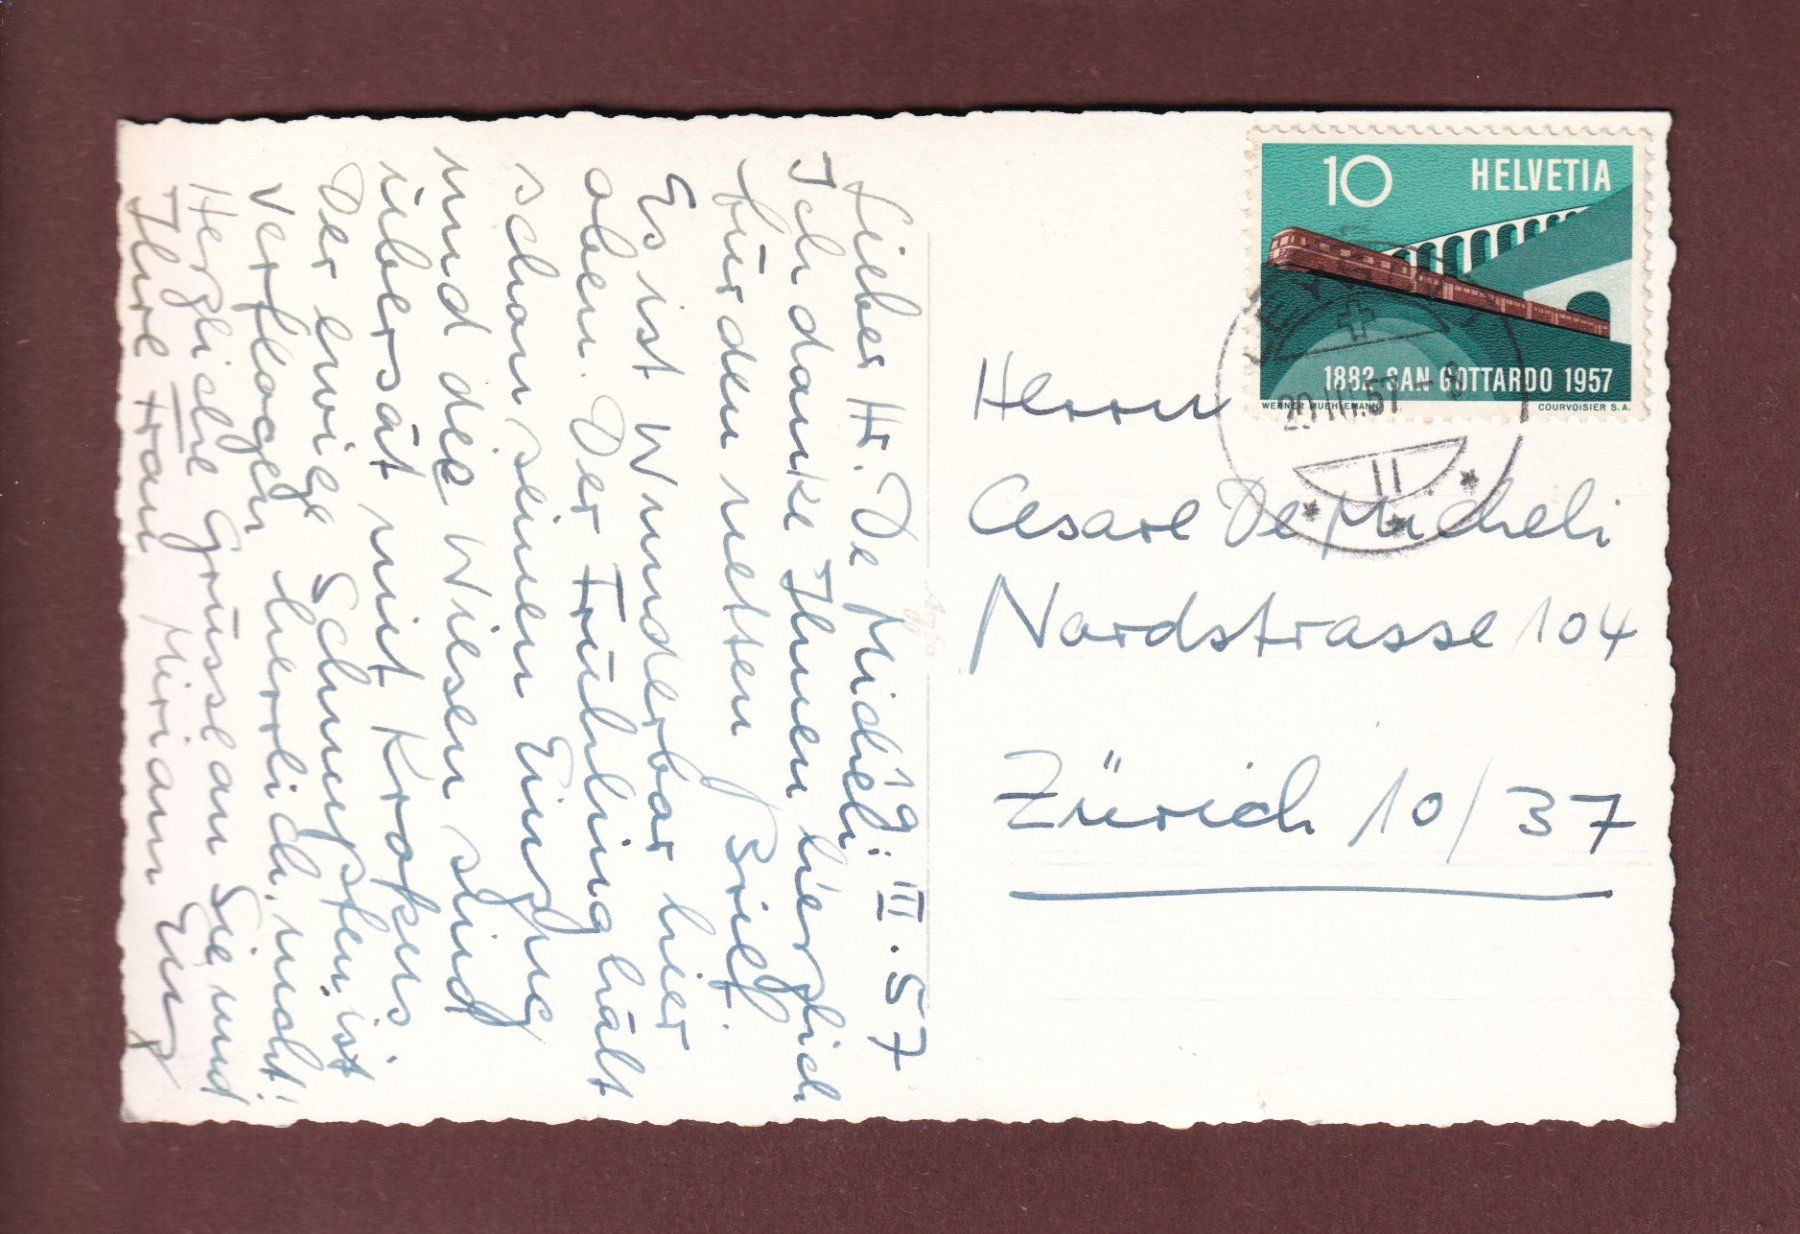 19. III. 57
Lieber Hr. De Micheli.
Ich danke Ihnen herzlich
für den netten Brief.
Es ist Wunderbar hier
oben. Der Frühling hält
schon seinen Einzug
und die Wiesen sind
übersät mit Krokus
Der ewige Schnupfen ist
verflogen herrlich, nicht!
Herzliche Grüsse an Sie und
Ihre Frau Miriam
10 HELVETIA
1882 SAN GOTTARDO 1957
WERNER MUEHLEMANN COURVOISIER S.A.
20.III.57
Herrn
Cesare De Micheli
Nordstrasse 104
Zürich 10/37